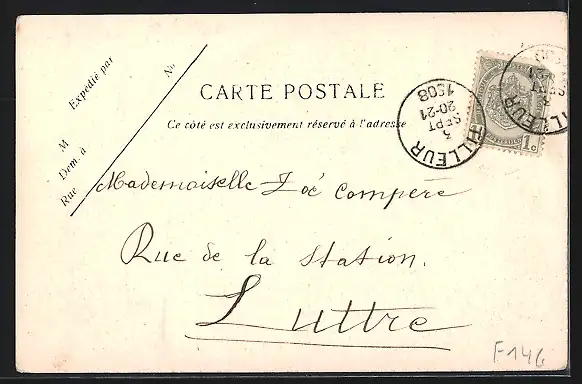 Expédié par
No.
M
Dem. à
Rue
CARTE POSTALE
Ce côté est exclusivement réservé à l'adresse
TILLEUR
3
SEPT
20-21
1908
TILLEUR
1c
Mademoiselle Zoé Compère
Rue de la Station.
Luttre
F146